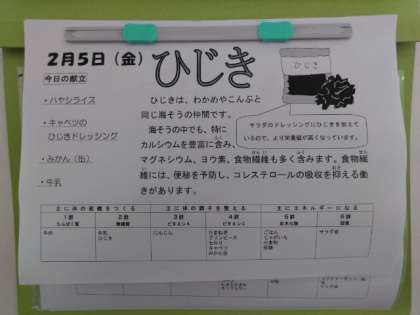 2月5日（金）
ひじき
ひじき
今日の献立
・ハヤシライス
・キャベツの
ひじきドレッシング
・みかん（缶）
・牛乳
ひじきは、わかめやこんぶと
同じ海そうの仲間です。
海そうの中でも、特に
カルシウムを豊富に含み、
マグネシウム、ヨウ素、食物繊維も多く含みます。食物繊
維には、便秘を予防し、コレステロールの吸収を抑える働
きがあります。
サラダのドレッシングにひじきを加えて
いるので、より栄養価が高くなっています。
主に体の組織をつくる
主に体の調子を整える
主にエネルギーになる
1群 2群 3群 4群 5群 6群
たんぱく質 無機質 ビタミンA ビタミンC 炭水化物 脂質
牛肉
牛乳
ひじき
にんじん
たまねぎ
グリンピース
セロリ
キャベツ
みかん缶
ごはん
じゃがいも
小麦粉
砂糖
サラダ油